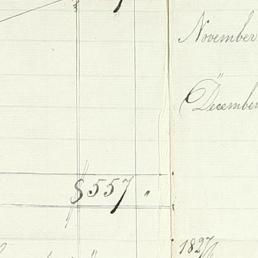 November
"
December
$557 "
1827